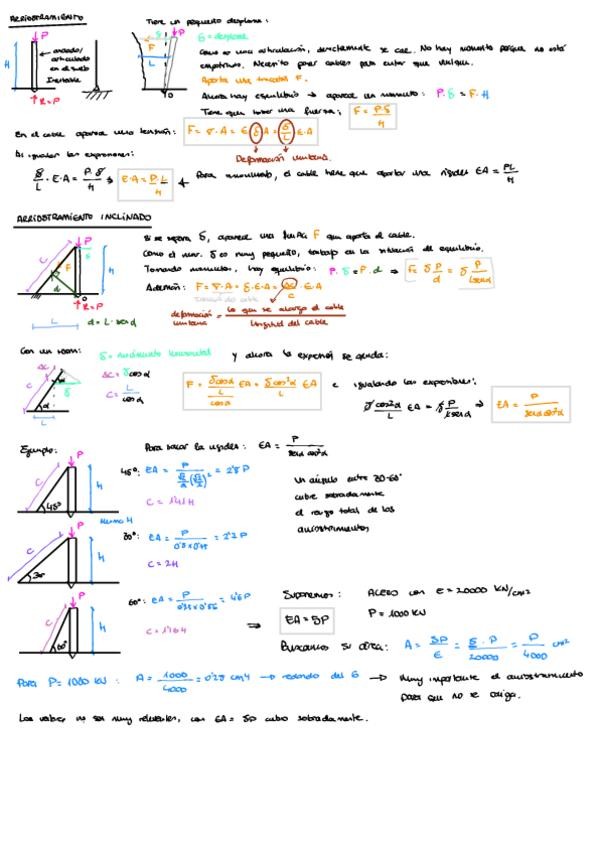 ARRIOSTRAMIENTO
Tiene un pequeño desplome:
P
H
anclado/
articulado
en el suelo
Inestable
R = P
P
δ
F
L
O
δ = desplome
Como es una articulación, directamente se cae. No hay momento porque no está
empotrado. Necesito poner cables para evitar que vuelque.
Aporta una tracción F.
Ahora hay equilibrio → aparece un momento: P·δ = F·H
Tiene que haber una fuerza: F = P·δ/H
En el cable aparece una tensión: F = σ·A = E δ A = δ/L E·A
Deformación unitaria.
As igualar las expresiones:
δ/L · E·A = P·δ/H ⇒ E·A = P·L/H
Para momento, el cable tiene que aportar una rigidez EA = PL/H
ARRIOSTRAMIENTO INCLINADO
P
δ
C
F
d
H
O
R = P
L
d = L·senα
Si se separa δ, aparece una fuerza F que aporta el cable.
Como el mov. δ es muy pequeño, trabajo en la situación de equilibrio.
Tomando momentos, hay equilibrio: P·δ = F·d ⇒ F = δ P/d = δ P/Lsenα
Además: F = σ·A = δ·E·A = ΔC/C E·A
deformación unitaria = Lo que se alarga el cable / longitud del cable
Con un zoom:
δ = movimiento horizontal
y ahora la expresión se queda:
ΔC
C
α
δ
L
ΔC = δcosα
C = L/cosα
F = δcosα/(L/cosα) EA = δcos²α/L EA
e igualando las expresiones:
δcos²α/L EA = δ P/Lsenα ⇒ EA = P/senαcos²α
Ejemplo:
Para sacar la rigidez: EA = P/senαcos²α
P
C
H
45°
45°: EA = P/(√2/2 (√2/2)²) = 2'8 P
C = 1'41H
Un ángulo entre 30-60°
cubre sobradamente
el rango total de los
arriostramientos
Mismo H
P
C
H
30°
30°: EA = P/(0'5×0'75)
C = 2H
P
C
H
60°
60°: EA =
⇒ EA = 5P
Suponemos: ACERO con E = 20000 KN/cm²
P = 1000 KN
Buscamos su área: A = 5P/E = 5·P/20000 = P/4000 cm²
Para P = 1000 KN: A = 1000/4000 = 0'25 cm² → redondo del 6 → Muy importante el arriostramiento
para que no se caiga.
Los valores no son muy relevantes, con EA = 5P cubro sobradamente.